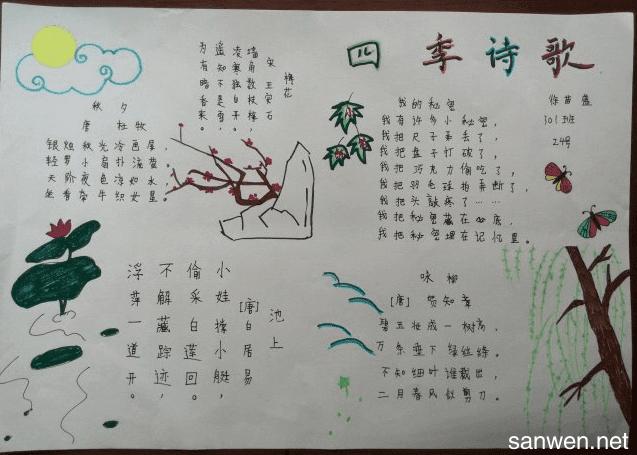 四季诗歌
301班
24号
梅花
宋 王安石
墙角数枝梅，
凌寒独自开。
遥知不是雪，
为有暗香来。
秋夕
唐 杜牧
银烛秋光冷画屏，
轻罗小扇扑流萤。
天阶夜色凉如水，
坐看牵牛织女星。
我的秘密
我有许多小秘密，
我把尺子弄丢了，
我把盘子打破了，
我把巧克力偷吃了，
我把羽毛球拍弄断了，
我把头敲疼了……
我把秘密藏在心底，
我把秘密埋在记忆里。
池上
[唐]白居易
小娃撑小艇，
偷采白莲回。
不解藏踪迹，
浮萍一道开。
咏柳
[唐] 贺知章
碧玉妆成一树高，
万条垂下绿丝绦。
不知细叶谁裁出，
二月春风似剪刀。
sanwen.net